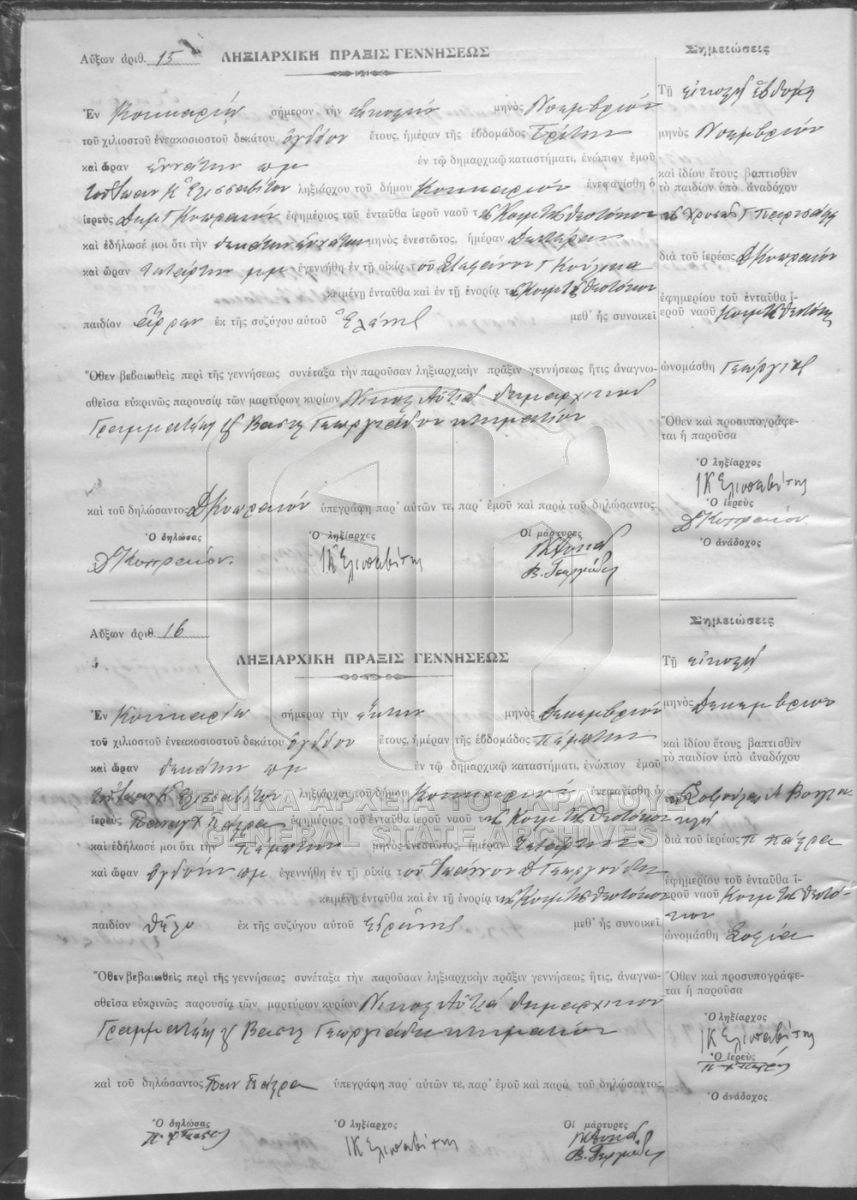 Αὔξων ἀριθ. 15
ΛΗΞΙΑΡΧΙΚΗ ΠΡΑΞΙΣ ΓΕΝΝΗΣΕΩΣ
Ἐν Κοκκαρίῳ σήμερον τὴν εἰκοστὴν μηνὸς Νοεμβρίου
τοῦ χιλιοστοῦ ἐνεακοσιοστοῦ δεκάτου ὀγδόου ἔτους, ἡμέραν τῆς ἑβδομάδος Τρίτην
καὶ ὥραν ἐννάτην πμ ἐν τῷ δημαρχικῷ καταστήματι, ἐνώπιον ἐμοῦ
τοῦ Ἰωαν Κ Ἐλισσαβίτου ληξιάρχου τοῦ δήμου Κοκκαρίου ἐνεφανίσθη ὁ
ἱερεὺς Δημ Κοπραιόν ἐφημέριος τοῦ ἐνταῦθα ἱεροῦ ναοῦ τῆς Κοιμ τῆς Θεοτόκου
καὶ ἐδήλωσέ μοι ὅτι τὴν δεκάτην ἐννάτην μηνὸς ἐνεστῶτος, ἡμέραν Δευτέραν
καὶ ὥραν τετάρτην μμ ἐγεννήθη ἐν τῇ οἰκίᾳ τοῦ
κειμένῃ ἐνταῦθα καὶ ἐν τῇ ἐνορίᾳ τῆς Κοιμ τῆς Θεοτόκου
παιδίον ἄρρεν ἐκ τῆς συζύγου αὐτοῦ Ἑλένης μεθ᾽ ἧς συνοικεῖ
Ὅθεν βεβαιωθεὶς περὶ τῆς γεννήσεως συνέταξα τὴν παροῦσαν ληξιαρχικὴν πρᾶξιν γεννήσεως ἥτις ἀναγνω-
σθεῖσα εὐκρινῶς παρουσίᾳ τῶν μαρτύρων κυρίων Νικολ δημαρχιακοῦ
Γραμματέως Βασιλ Γεωργιάδου κτηματίου
καὶ τοῦ δηλώσαντος Δ Κοπραιόν ὑπεγράφη παρ᾽ αὐτῶν τε, παρ᾽ ἐμοῦ καὶ παρὰ τοῦ δηλώσαντος.
Ὁ δηλώσας Ὁ ληξίαρχος Οἱ μάρτυρες
Δ Κοπραιόν. Ι Κ Ελισσαβίτης
Β. Γεωργιάδης
Σημειώσεις
Τῇ εἰκοστῇ ἑβδόμῃ
μηνὸς Νοεμβρίου
καὶ ἰδίου ἔτους βαπτισθὲν
τὸ παιδίον ὑπὸ ἀναδόχου
διὰ τοῦ ἱερέως Δ Κοπραιόν
ἐφημερίου τοῦ ἐνταῦθα ἱ-
εροῦ ναοῦ Κοιμ τῆς Θεοτόκ
ὠνομάσθη Γεώργιος
Ὅθεν καὶ προσυπογράφε-
ται ἡ παροῦσα
Ὁ ληξίαρχος
Ι Κ Ελισσαβίτης
Ὁ ἱερεὺς
Δ Κοπραιόν.
Ὁ ἀνάδοχος
Αὔξων ἀριθ. 16
ΛΗΞΙΑΡΧΙΚΗ ΠΡΑΞΙΣ ΓΕΝΝΗΣΕΩΣ
Ἐν Κοκκαρίῳ σήμερον τὴν ἕκτην μηνὸς Δεκεμβρίου
τοῦ χιλιοστοῦ ἐνεακοσιοστοῦ δεκάτου ὀγδόου ἔτους, ἡμέραν τῆς ἑβδομάδος Πέμπτην
καὶ ὥραν δεκάτην πμ ἐν τῷ δημαρχικῷ καταστήματι, ἐνώπιον ἐμοῦ
τοῦ Ἰωαν Κ Ἐλισσαβίτου ληξιάρχου τοῦ δήμου Κοκκαρίου ἐνεφανίσθη ὁ
ἱερεὺς ἐφημέριος τοῦ ἐνταῦθα ἱεροῦ ναοῦ τῆς Κοιμ τῆς Θεοτόκου
καὶ ἐδήλωσέ μοι ὅτι τὴν πέμπτην μηνὸς ἐνεστῶτος, ἡμέραν Τετάρτην
καὶ ὥραν ὀγδόην πμ ἐγεννήθη ἐν τῇ οἰκίᾳ τοῦ Ἰωάννου Δ
κειμένῃ ἐνταῦθα καὶ ἐν τῇ ἐνορίᾳ τῆς Κοιμ τῆς Θεοτόκου
παιδίον θῆλυ ἐκ τῆς συζύγου αὐτοῦ Εἰρήνης μεθ᾽ ἧς συνοικεῖ
Ὅθεν βεβαιωθεὶς περὶ τῆς γεννήσεως συνέταξα τὴν παροῦσαν ληξιαρχικὴν πρᾶξιν γεννήσεως ἥτις, ἀναγνω-
σθεῖσα εὐκρινῶς παρουσίᾳ τῶν μαρτύρων κυρίων Νικολ δημαρχιακοῦ
Γραμματέως Βασιλ Γεωργιάδη κτηματίου
καὶ τοῦ δηλώσαντος ὑπεγράφη παρ᾽ αὐτῶν τε, παρ᾽ ἐμοῦ καὶ παρὰ τοῦ δηλώσαντος.
Ὁ δηλώσας Ὁ ληξίαρχος Οἱ μάρτυρες
Ι Κ Ελισσαβίτης
Β. Γεωργιάδης
Σημειώσεις
Τῇ εἰκοστῇ
μηνὸς Δεκεμβρίου
καὶ ἰδίου ἔτους βαπτισθὲν
τὸ παιδίον ὑπὸ ἀναδόχου
διὰ τοῦ ἱερέως
ἐφημερίου τοῦ ἐνταῦθα ἱ-
εροῦ ναοῦ Κοιμ τῆς Θεοτό-
κου
ὠνομάσθη Σοφία
Ὅθεν καὶ προσυπογράφε-
ται ἡ παροῦσα
Ὁ ληξίαρχος
Ι Κ Ελισσαβίτης
Ὁ ἱερεὺς
Ὁ ἀνάδοχος
ΓΕΝΙΚΑ ΑΡΧΕΙΑ ΤΟΥ ΚΡΑΤΟΥΣ
GENERAL STATE ARCHIVES